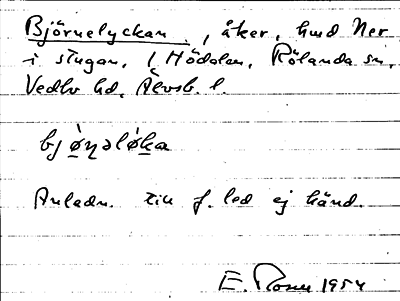 Björnelyckan, åker, hmd Ner
i stugan, 1 Hödalen, Rölanda sn,
Vedbo hd, Älvsb. l.
bjònəlòka
Anledn. till f. led ej känd.
E. 1954